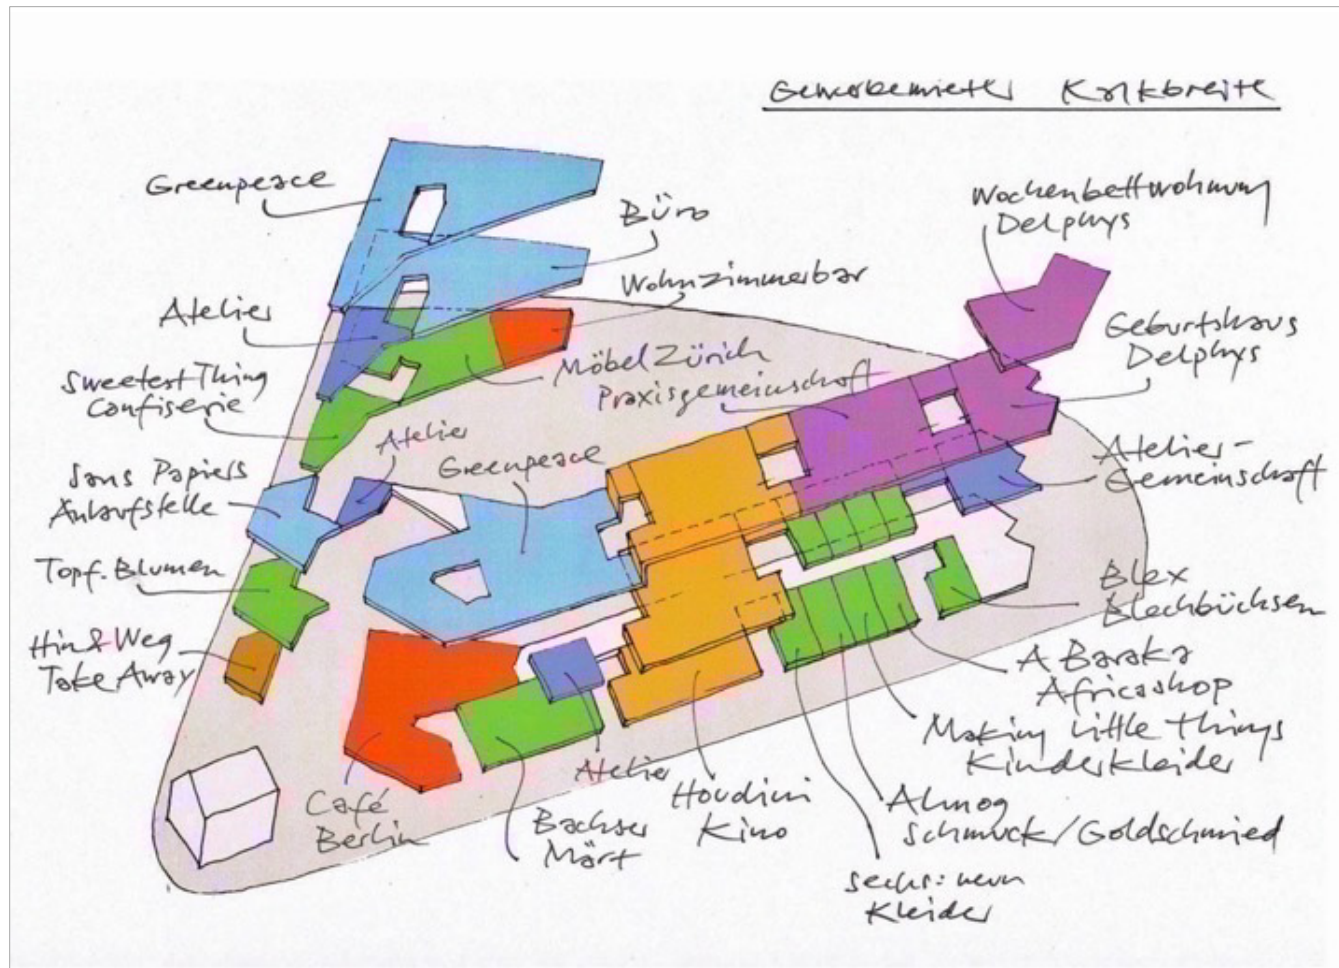 Gewerbemieter Kalkbreite
Greenpeace
Büro
Wochenbettwohnung
Delphys
Wohnzimmerbar
Atelier
Geburtshaus
Delphys
Möbel Zürich
Sweetest Thing
Confiserie
Praxisgemeinschaft
Atelier
Greenpeace
Atelier-
Gemeinschaft
Sans Papiers
Anlaufstelle
Topf. Blumen
Blex
Blechbüchsen
Hin & Weg
Take Away
A Baraka
Africashop
Making Little Things
Kinderkleider
Atelier
Café
Berlin
Houdini
Kino
Almog
Schmuck/Goldschmied
Bachser
Märt
sechs:neun
Kleider